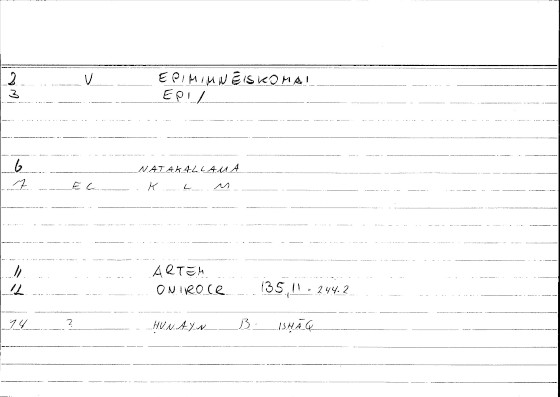 2 V EPIMIMNĒISKOMAI
3 EPI/
6 NATAKALLAMA
7 EC K L M
11 ARTEM
12 ONIROCR 135,11 - 244.2
14 ? ḤUNAYN B. ISḤĀQ